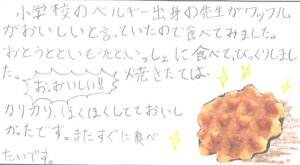 小学校のベルギー出身の先生がワッフル
がおいしいと言っていたので食べてみました。
おとうとといもうとといっしょに食べて、びっくりしまし
た。
お、おいしい!!
焼きたては
カリカリ、ほくほくしてておいし
かったです。またすぐに食べ
たいです。